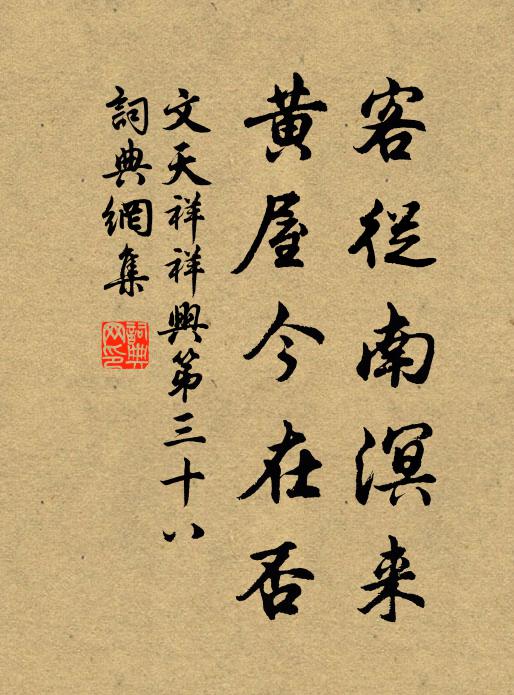 客從南溟来
黄屋今在否
文天祥祥興第三十八
詞典網集
詞典网印